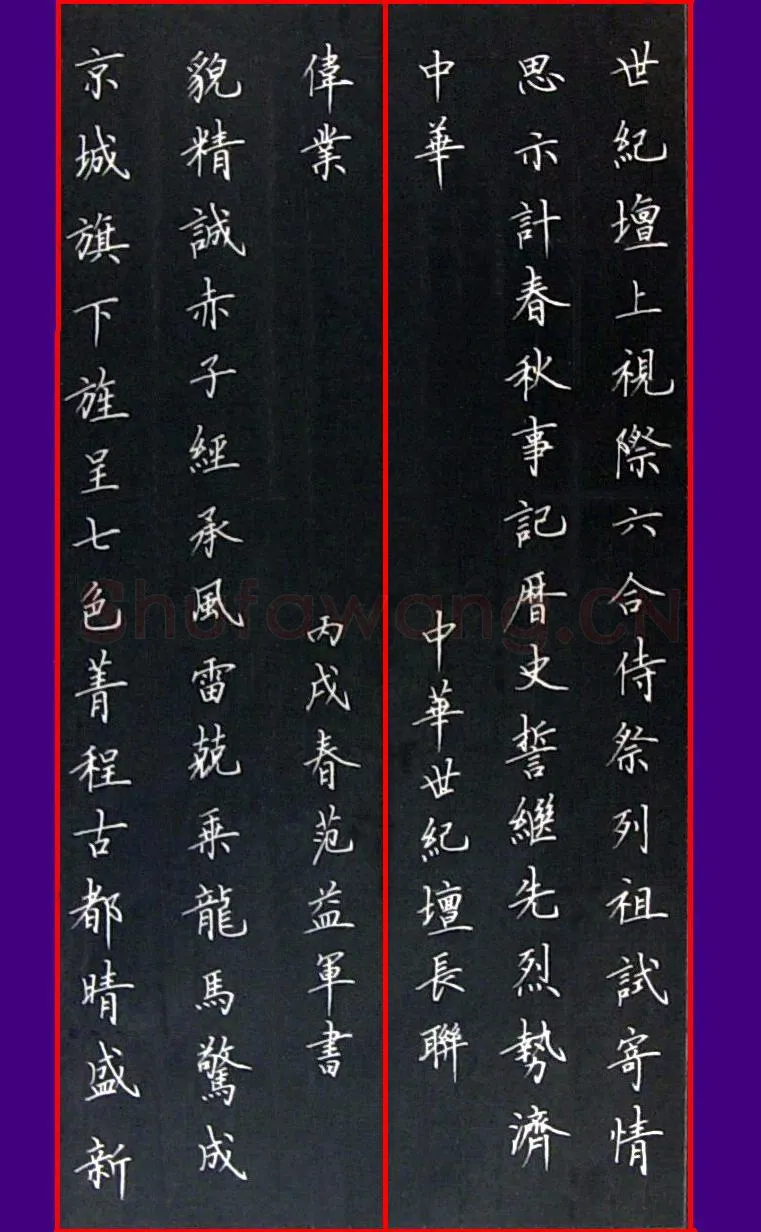 世紀壇上視際六合侍祭列祖試寄情
思示計春秋事記暦史誓繼先烈勢濟
中華
中華世紀壇長聯
京城旗下旌呈七色菁程古都晴盛新
貌精誠赤子經承風雷兢乗龍馬驚成
偉業
丙戌春范益軍書
Shufawang.CN